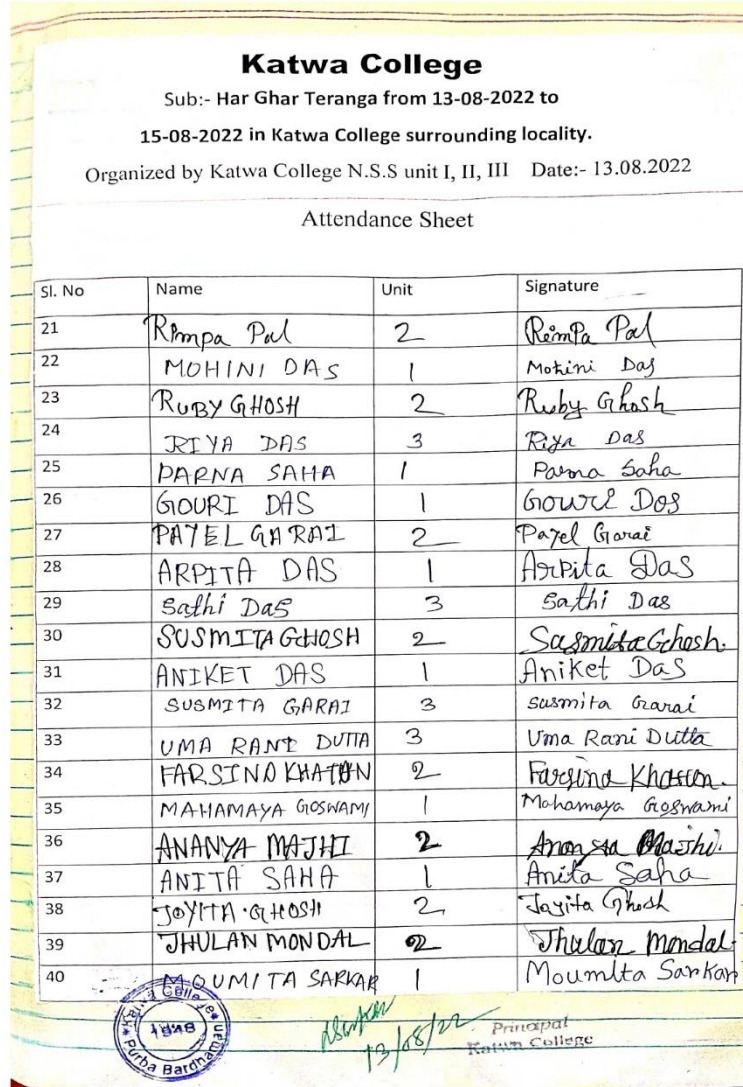 Katwa College
Sub:- Har Ghar Teranga from 13-08-2022 to
15-08-2022 in Katwa College surrounding locality.
Organized by Katwa College N.S.S unit I, II, III Date:- 13.08.2022
Attendance Sheet
Sl. No Name Unit Signature
21 Rimpa Pal 2 Rimpa Pal
22 MOHINI DAS 1 Mohini Das
23 RUBY GHOSH 2 Ruby Ghosh
24 RIYA DAS 3 Riya Das
25 PARNA SAHA 1 Parna Saha
26 GOURI DAS 1 Gouri Das
27 PAYEL GARAI 2 Payel Garai
28 ARPITA DAS 1 Arpita Das
29 Sathi Das 3 Sathi Das
30 SUSMITA GHOSH 2 Susmita Ghosh.
31 ANIKET DAS 1 Aniket Das
32 SUSMITA GARAI 3 Susmita Garai
33 UMA RANI DUTTA 3 Uma Rani Dutta
34 FARSINA KHATUN 2 Farsina Khatun.
35 MAHAMAYA GOSWAMI 1 Mahamaya Goswami
36 ANANYA MAJHI 2 Ananya Majhi.
37 ANITA SAHA 1 Anita Saha
38 JOYITA GHOSH 2 Joyita Ghosh
39 JHULAN MONDAL 2 Jhulan Mondal
40 MOUMITA SARKAR 1 Moumita Sarkar
Katwa College
1948
Purba Bardhaman
13/08/22
Principal
Katwa College